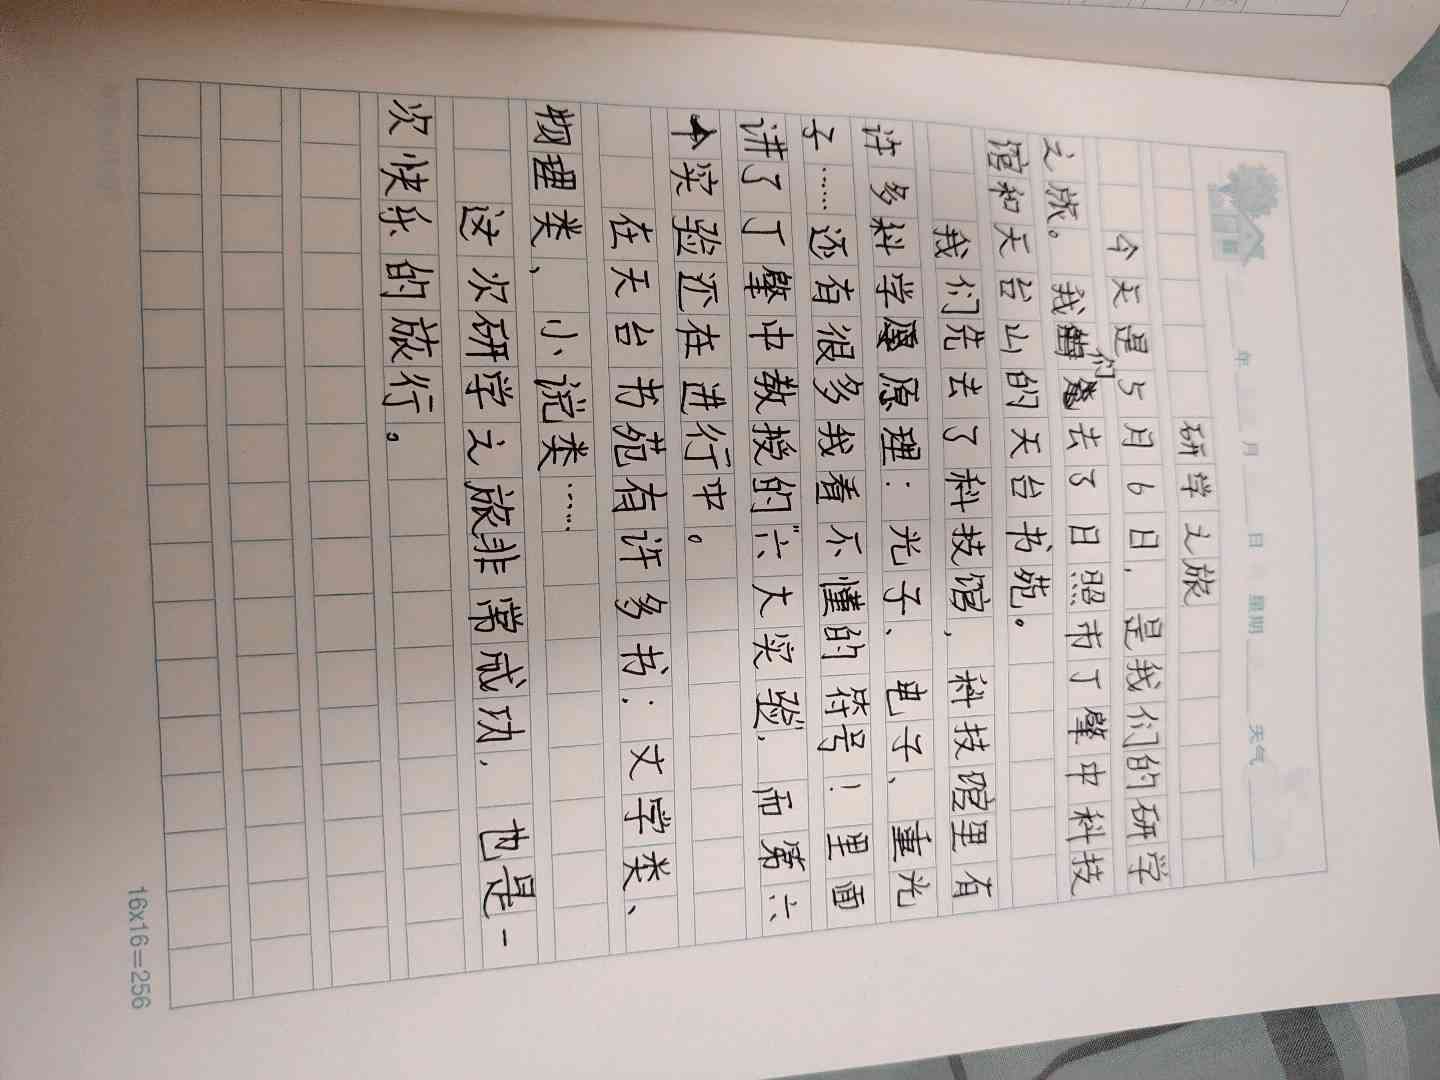 年 月 日 星期 天气
研学之旅
今天是5月6日，是我们的研学
之旅。我们去了日照市丁肇中科技
馆和天台山的天台书苑。
我们先去了科技馆，科技馆里有
许多科学愿理：光子、电子、重光
子……还有很多我看不懂的符号！里面
讲了丁肇中教授的“六大实验”，而第六
个实验还在进行中。
在天台书苑有许多书：文学类、
物理类、小说类……
这次研学之旅非常成功，也是一
次快乐的旅行。
16x16=256